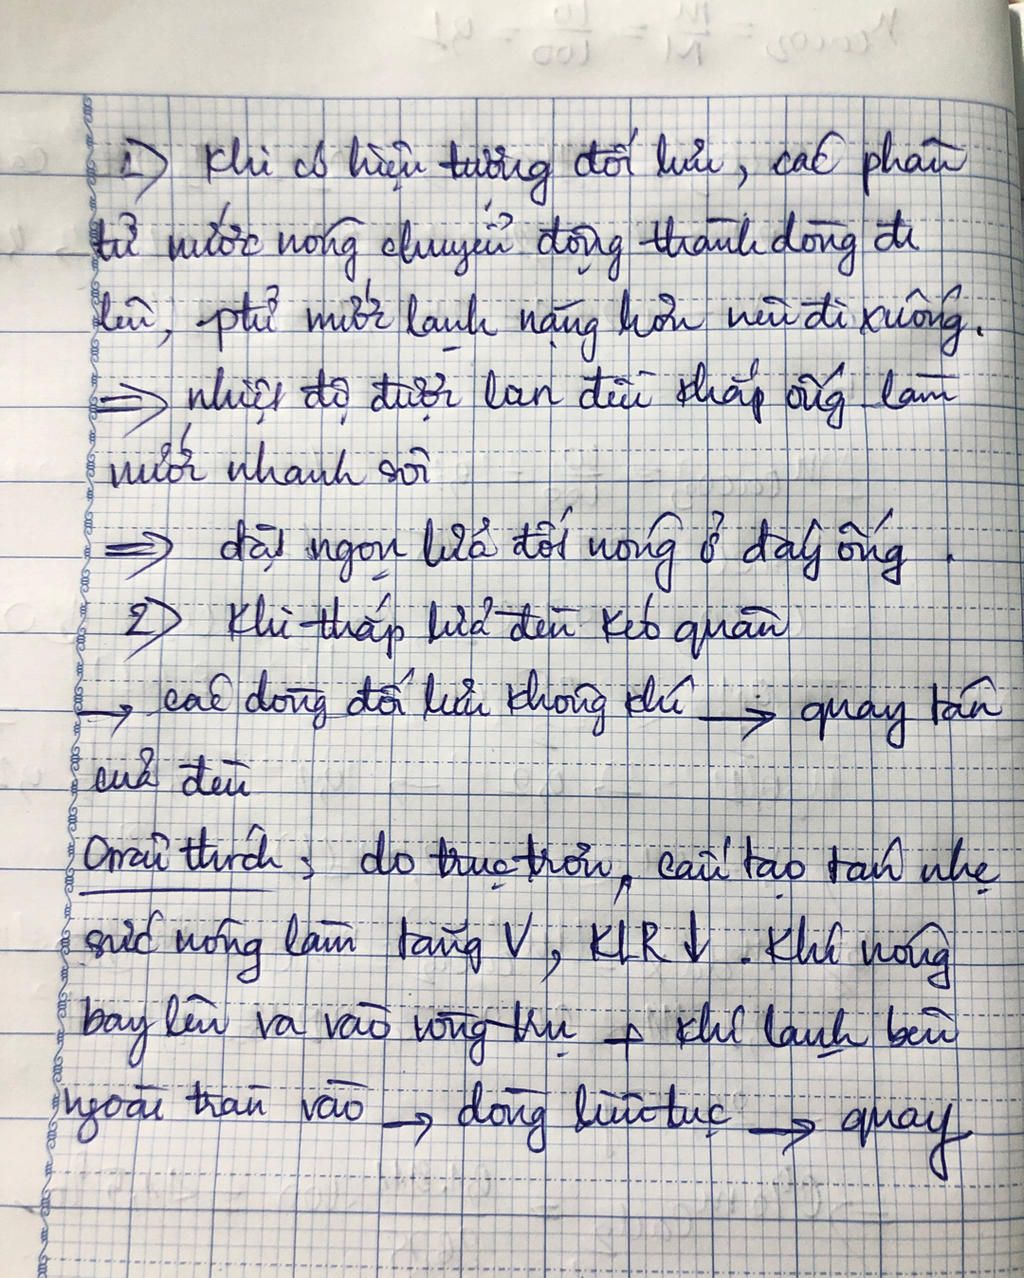 1) Khi có hiện tượng đối lưu, các phân
tử nước nóng chuyển động thành dòng đi
lên, ptử nước lạnh nặng hơn nên đi xuống.
=> nhiệt độ được lan đều khắp ống làm
nước nhanh sôi
=> đặt ngọn lửa đốt nóng ở đáy ống.
2) Khi thắp lửa đèn kéo quân
→ các dòng đối lưu không khí → quay tán
của đèn
Giải thích: do trục trơn, cấu tạo tán nhẹ
sức nóng làm tăng V, KLR ↓. Khí nóng
bay lên va vào vòng trụ + khí lạnh bên
ngoài tràn vào → dòng liên tục → quay